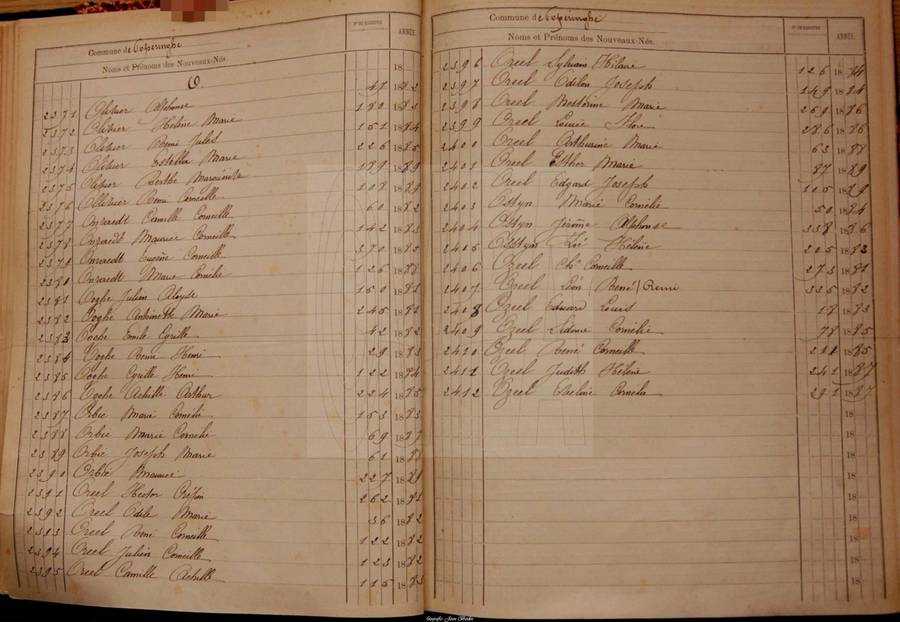 Commune de Poperinghe
Noms et Prénoms des Nouveaux-Nés.
ANNÉE
18
O
2371 Olivier Alphonse 47 1882
2372 Olivier Helène Marie 180 1883
2373 Olivier Remi Jules 151 1884
2374 Olivier Estella Marie 226 1885
2375 Olivier Berthe Marguerite 189
2376 Ollivier Remi Corneille 108
2377 Camille Corneille 60 1882
2378 Maurice Corneille 142 1883
2379 Eugène Corneille 370 1885
2380 Marie Cornelie 126
2381 Ooghe Julien Aloyse 150
2382 Ooghe Antoinette Marie 245
2383 Ooghe Emile Cyrille 42 1882
2384 Ooghe Remi Henri 29 1883
2385 Ooghe Cyrille Henri 122 1884
2386 Ooghe Achille Arthur 224 1885
2387 Orbie Marie Cornelie 153 1883
2388 Orbie Marie Cornelie 69 1887
2389 Orbie Joseph Marie 61 1888
2390 Orbie Maurice 227
2391 Oreel Hector 262 1881
2392 Oreel Odile Marie 36 1882
2393 Oreel Remi Corneille 122 1882
2394 Oreel Julien Corneille 123 1882
2395 Oreel Camille Achille 115 1883
Commune de Poperinghe
Noms et Prénoms des Nouveaux-Nés.
ANNÉE
2396 Oreel Sylvain Hilaire 126 1884
2397 Oreel Odilon Joseph 149 1884
2398 Oreel Marie 269 1886
2399 Oreel Louise Flore 286 1886
2400 Oreel Arthurine Marie 63 1888
2401 Oreel Esther Marie 87 1889
2402 Oreel Edgard Joseph 105 1889
2403 Ostyn Marie Cornelie 50 1884
2404 Ostyn Jérôme Alphonse 338 1886
2405 Osstyn Zoé Hélène 205 1883
2406 Ozeel Chs Corneille 273 1881
2407 Ozeel Léon (René) Remi 335 1882
2408 Ozeel Edouard Louis 18 1883
2409 Ozeel Sidonie Cornelie 78 1885
2410 Ozeel René Corneille 1885
2411 Ozeel Judith Hélène 241 1887
2412 Ozeel Cornelie 291 1887
18
18
18
18
18
18
18
18
18